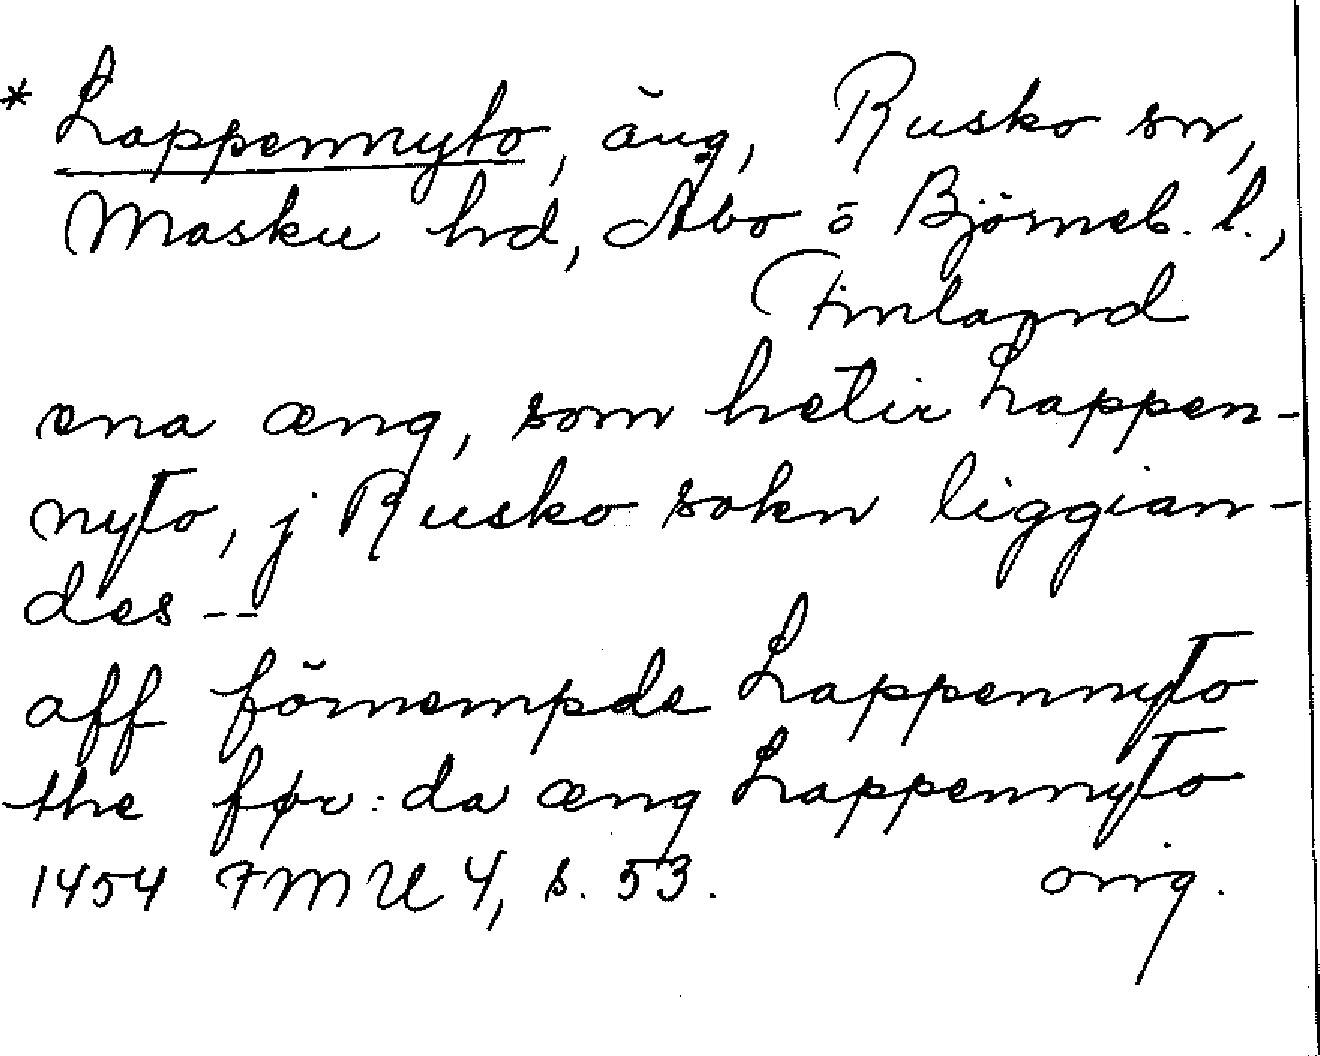 * Lappennyto, äng, Rusko sn,
Masku hd, Åbo o Björneb. l.,
Finland
ena æng, som hetir Lappen-
nyto, j Rusko sokn liggian-
des --
aff förnempde Lappennyto
the før: da æng Lappennyto
1454 FMU 4, s. 53. orig.